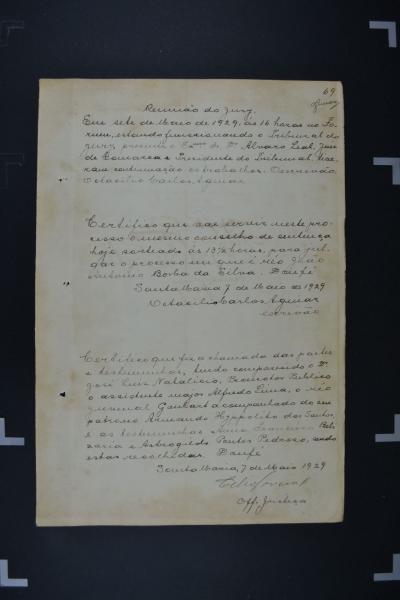 69
Reunião do Jury.
Em sete de Maio de 1929, ás 16 horas no Fo-
rum, estando funccionando o Tribunal do
Jury, presente o Exmo. Sr. Dr. Alvaro Leal, Juiz
de Comarca e Presidente do Tribunal, tive-
ram continuação os trabalhos. O escrivão
Octacilio Carlos Aguiar
Certifico que vae servir neste pro-
cesso o mesmo conselho de sentença
hoje sorteado ás 13½ horas, para jul-
gar o processo em que é réo João
Antonio Borba da Silva. Doufé
Santa Maria 7 de Maio de 1929
Octacilio Carlos Aguiar
escrivão
Certifico que fiz a chamada das partes
e testemunhas, tendo comparecido o Dr.
José Luiz Natalicio, Promotor Publico
o assistente major Alfredo Lima, o réo
Juvenal acompanhado do seu
patrono Armando Hyppolito dos Santos,
e as testemunhas Anna Francisca Beli
zaria e Astrogildo Pontes Pedroso, sendo
estas recolhidas. Doufé
Santa Maria, 7 de Maio 1929
Off. Justiça